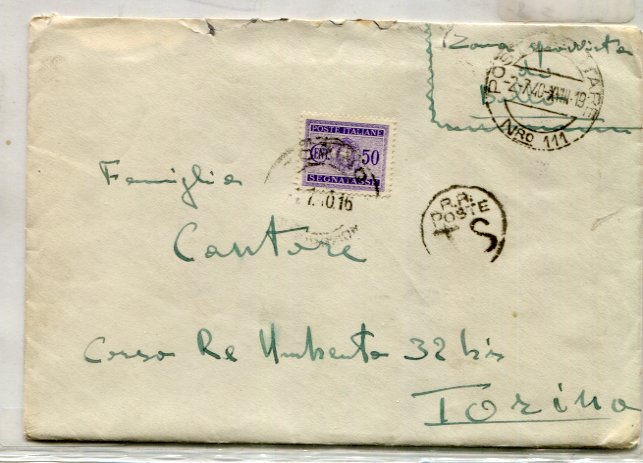 Zona sprovvista
di
bolli
POSTA MILITARE
-2.7.40-XVIII-19
NRO. 111
POSTE ITALIANE
CENT. 50
SEGNATASSE
7.40.16
R.R.
POSTE
T S
Famiglia
Cantore
Corso Re Umberto 32 bis
Torino